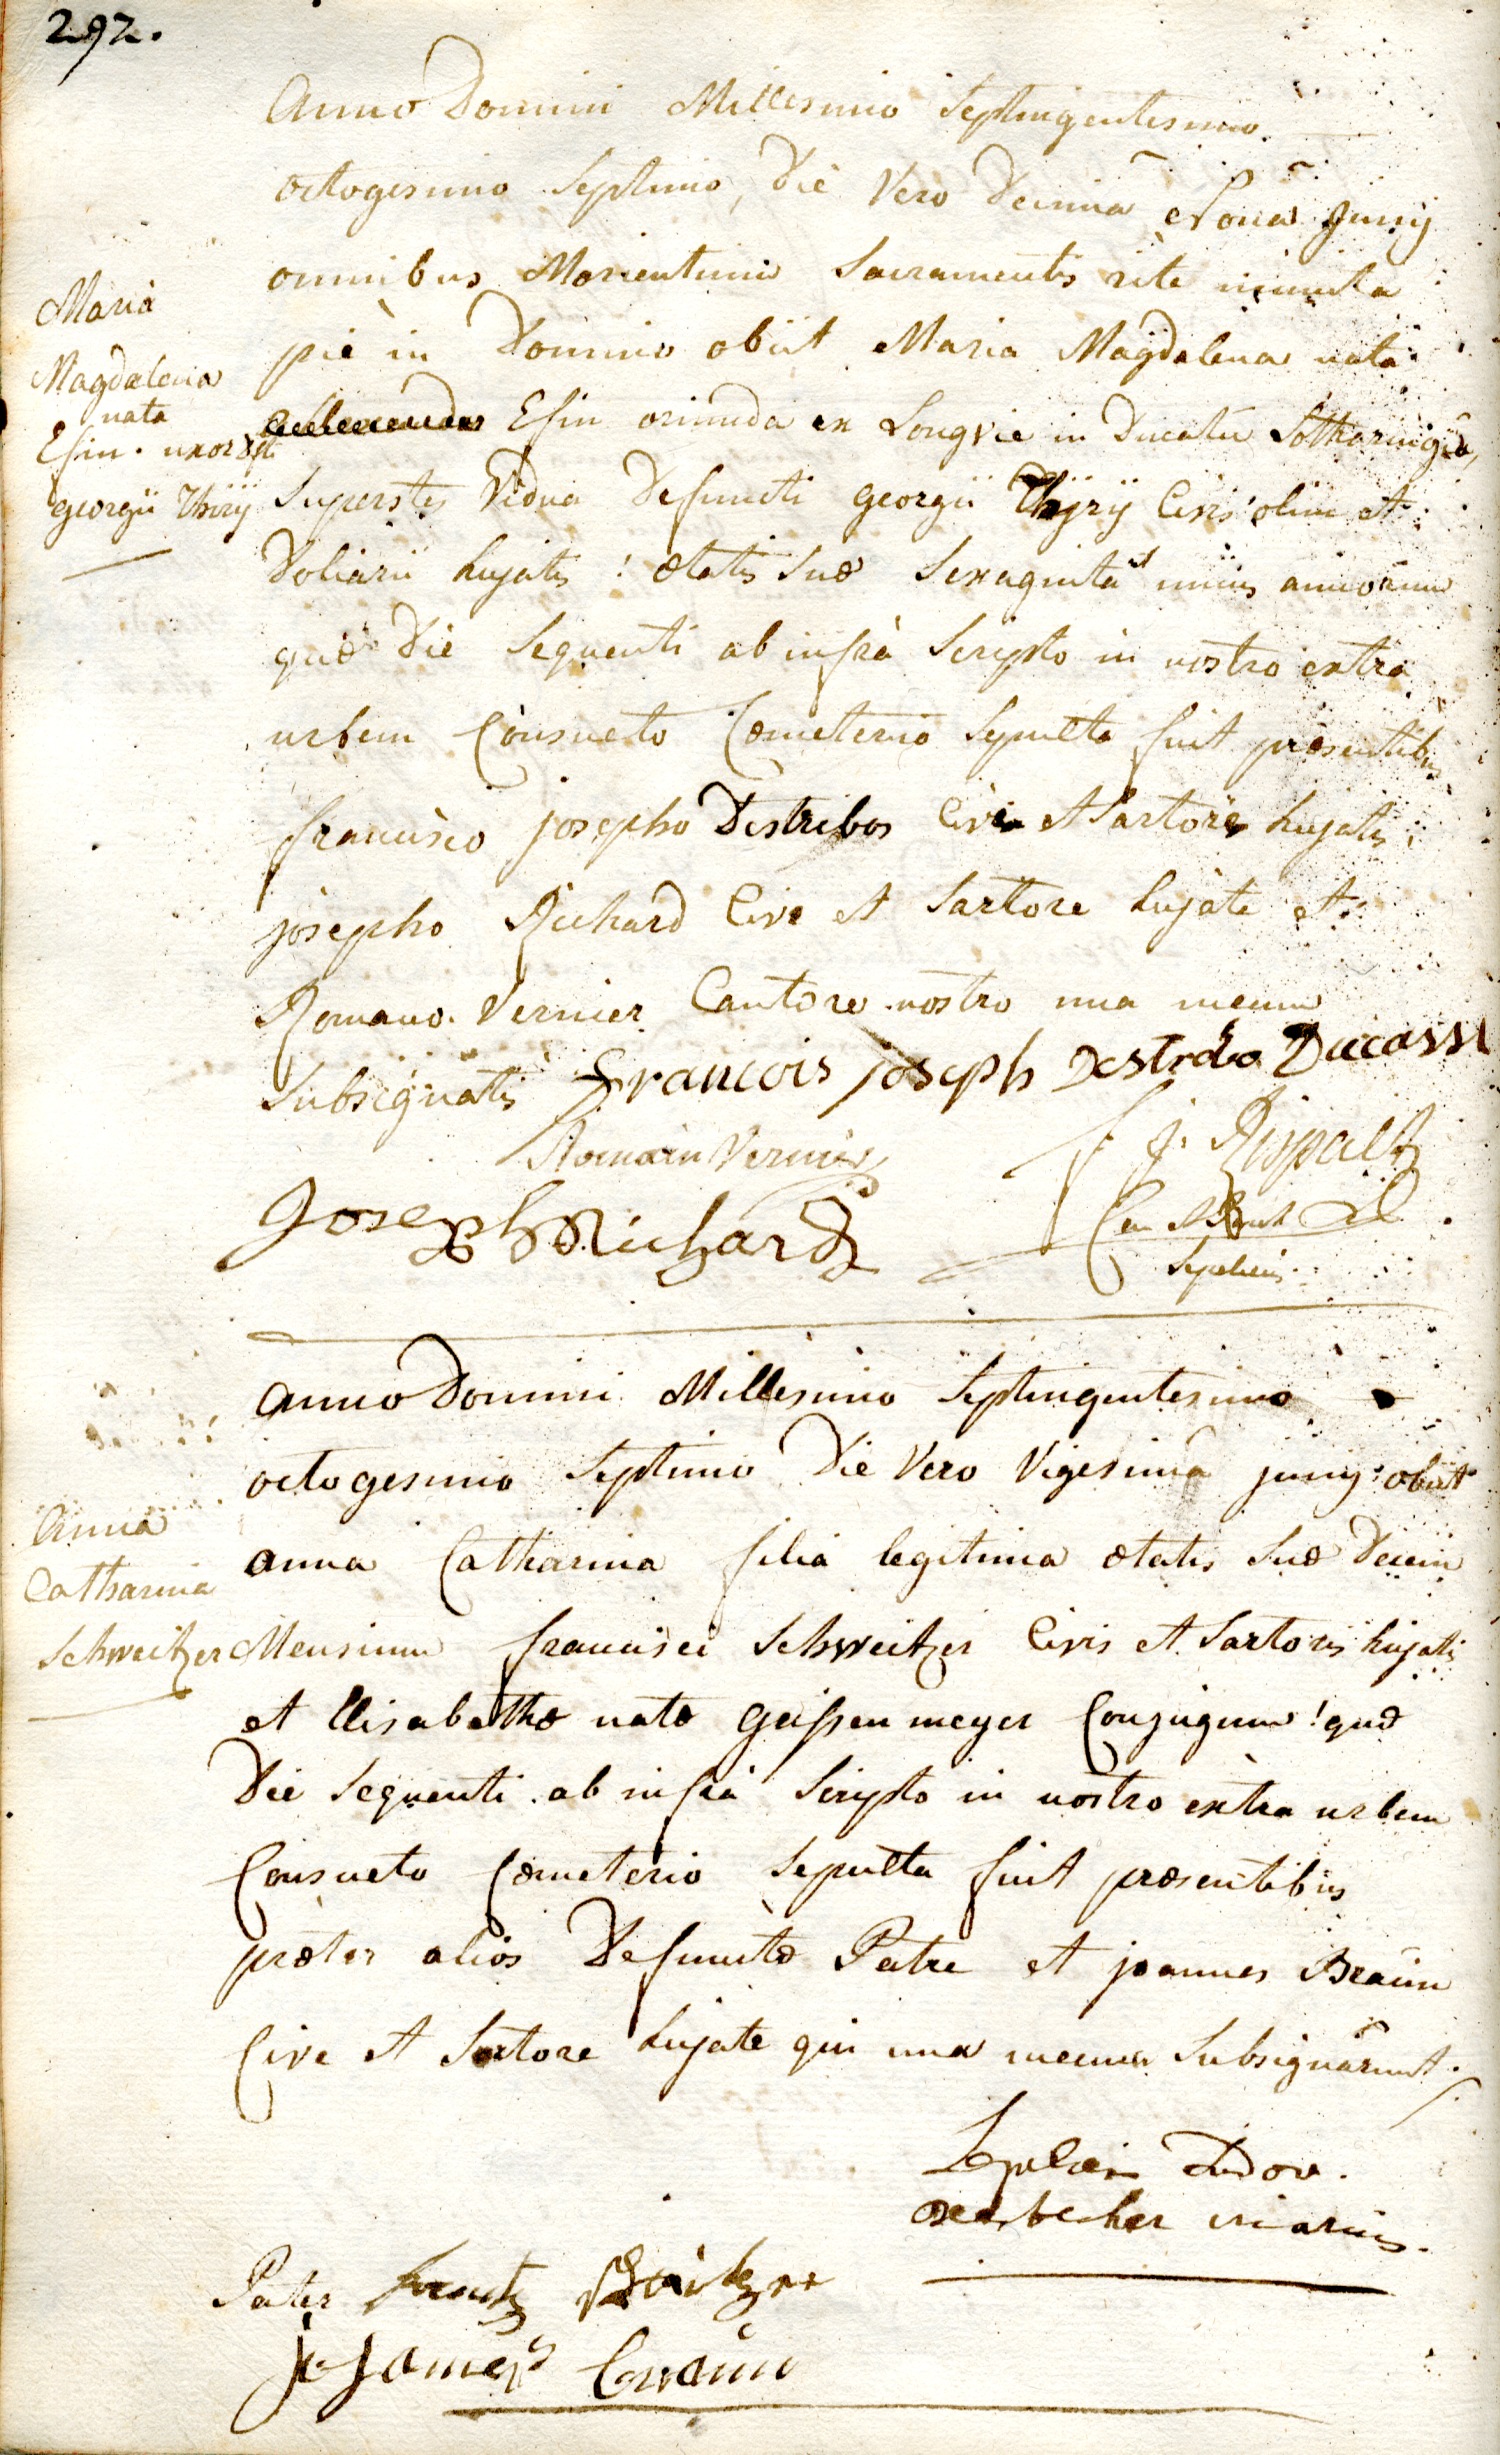 292.
Anno Domini Millesimo Septingentesimo
octogesimo Septimo, Die Vero Decimâ Nonâ Junij
omnibus Morientium Sacramentis rite munita
piè in Domino obiit Maria Magdalena nata
Esin oriunda ex Longvic in Ducatu Lotharingiæ,
Superstes Vidua Defuncti georgii Thijrij Civis olim et
Doliarii hujatis ! ætatis suæ Sexaginta unius annorum
quæ Die Sequenti ab infrà Scripto in nostro extra
urbem Consueto Cœmeterio Sepulta fuit præsentibus
francisco josepho Destribos Cive et Sartore hujate,
josepho Richard Cive et Sartore hujate et
Romano Vernier Cantore nostro una mecum
Subsignatis francois joseph Destribo Ducassi
Romain Vernier
f j. Rispalt
Joseph Richard
Sepeliens
Maria
Magdalena
nata
Esin. uxor
georgii Thirij
Anno Domini Millesimo Septingentesimo
octogesimo Septimo Die Vero Vigesimâ junij obiit
anna Catharina filia legitima ætatis suæ Decem
Mensium francisci Schweitzer Civis et Sartoris hujatis
et Elisabethæ natæ geissenmeyer Conjugum ! quæ
Die Sequenti ab infrà Scripto in nostro extra urbem
Consueto Cœmeterio Sepulta fuit præsentibus
præter alios Defunctæ Patre et joannes Braun
Cive et Sartore hujate qui una mecum Subsignârunt.
Anna
Catharina
Schweitzer
Sepeliens Ludov.
vicarius.
Pater frantz